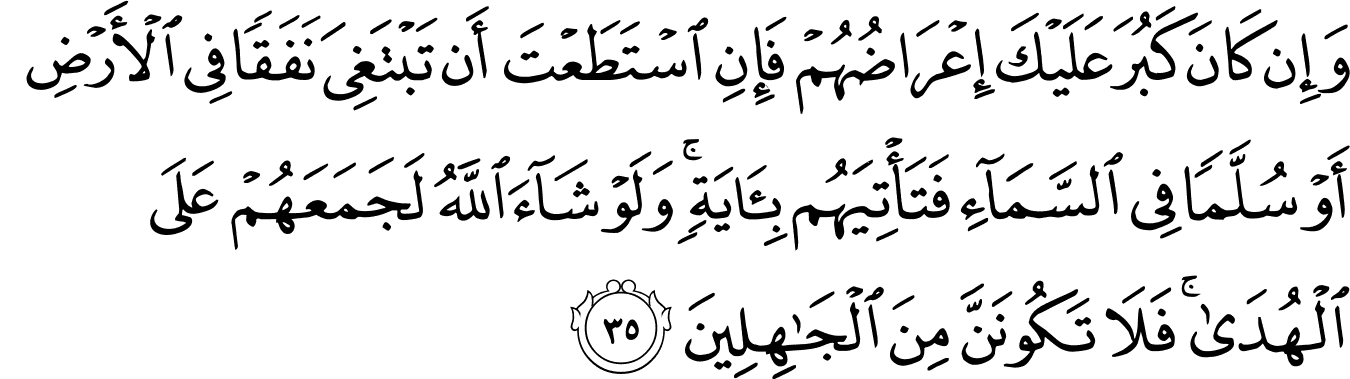 وَإِن كَانَ كَبُرَ عَلَيْكَ إِعْرَاضُهُمْ فَإِنِ ٱسْتَطَعْتَ أَن تَبْتَغِىَ نَفَقًا فِى ٱلْأَرْضِ
أَوْ سُلَّمًا فِى ٱلسَّمَآءِ فَتَأْتِيَهُم بِـَٔايَةٍ ۚ وَلَوْ شَآءَ ٱللَّهُ لَجَمَعَهُمْ عَلَى
ٱلْهُدَىٰ ۚ فَلَا تَكُونَنَّ مِنَ ٱلْجَـٰهِلِينَ ٣٥